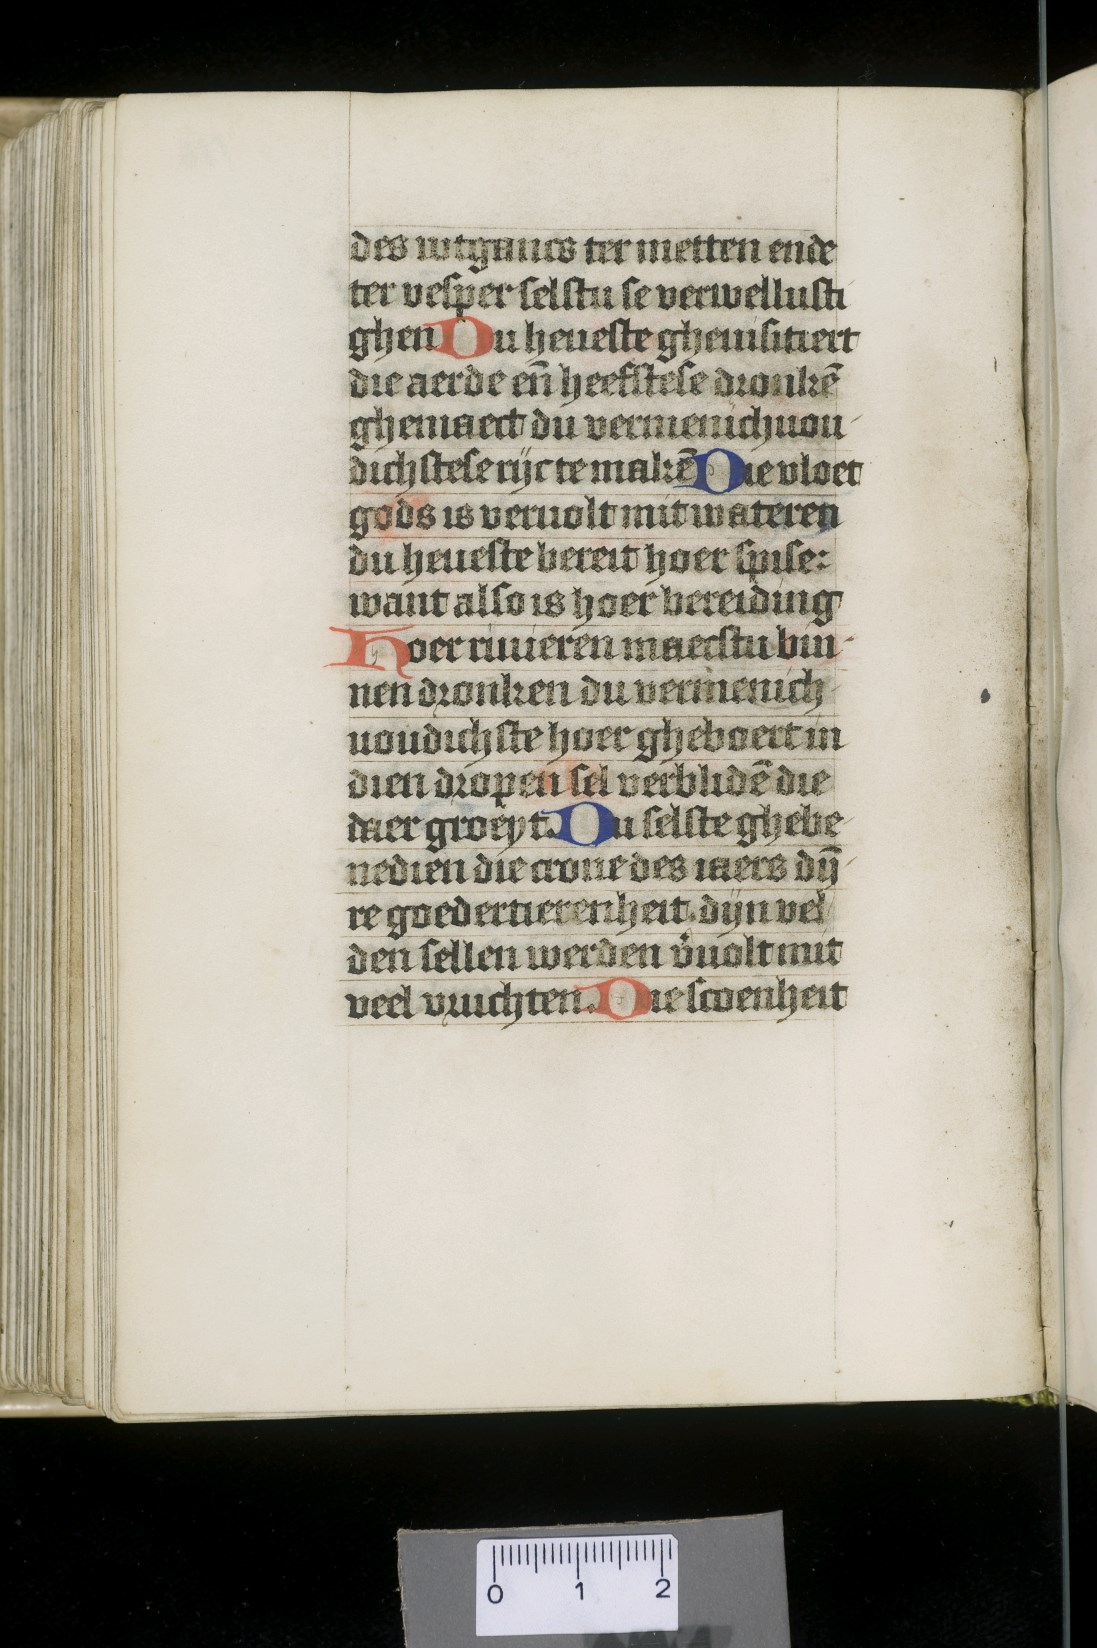 des wtgancs ter metten ende
ter vesper selstu se verwellusti
ghen Du heueste gheuisitiert
die aerde en̄ heefstese dronkē
ghemaect du vermenichuou
dichstese rijc te makē Die vloet
gods is veruolt mit wateren
du heueste bereit hoer spise:
want also is hoer bereiding
Hoer riuieren maecstu bin
nen dronken du vermenich
uoudichste hoer gheboert in
dien dropen sel verblidē die
daer groeyt. Du selste ghebe
nedien die crone des iaers dij̄
re goedertierenheit. dijn vel
den sellen werden v̉uolt mit
veel vruchten. Die scoenheit
0 1 2